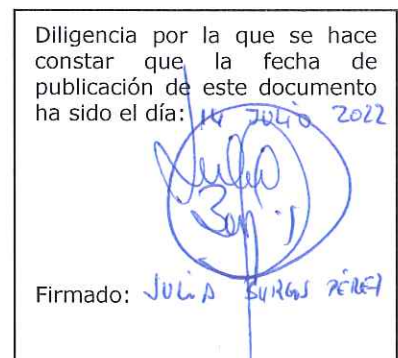 Diligencia por la que se hace
constar que la fecha de
publicación de este documento
ha sido el día: 14 JULIO 2022
Firmado: JULIA BURGOS PÉREZ